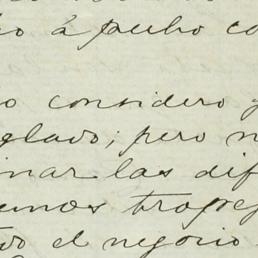 o á pecho co
o considero y
elado; pero n
inar las dif
emos trope
do el negocio